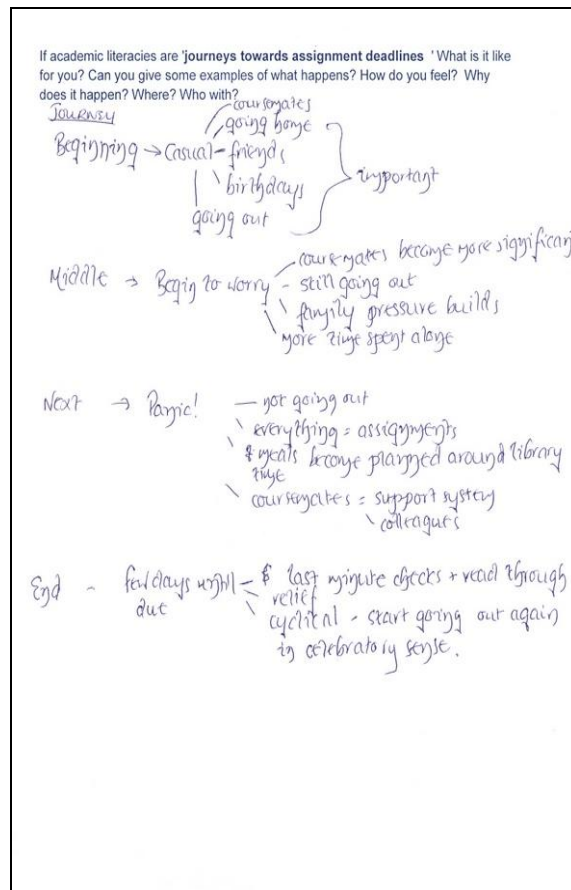 If academic literacies are 'journeys towards assignment deadlines ' What is it like
for you? Can you give some examples of what happens? How do you feel? Why
does it happen? Where? Who with?
JOURNEY
coursemates
going home
Beginning → Casual - friends
birthdays
going out
important
coursemates become more significant
Middle → Begin to worry - still going out
family pressure builds
more time spent alone
Next → Panic! - not going out
everything = assignments
meals become planned around library
time
coursemates = support system
colleagues
End - few days until - last minute checks + read through
due relief
cyclical - start going out again
in celebratory sense.